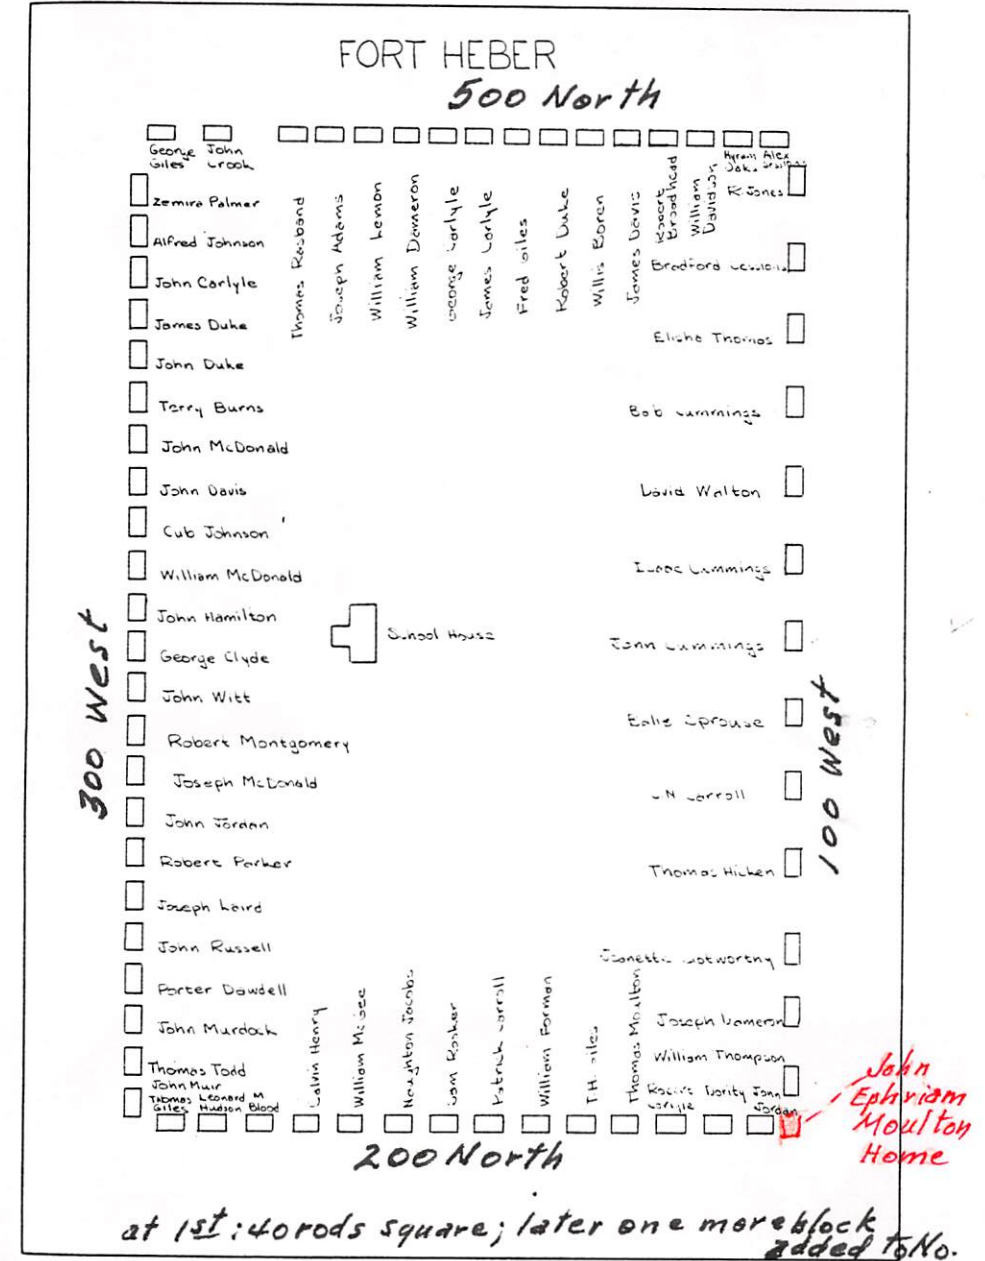 FORT HEBER
500 North
George Giles
John Crook
Thomas Rasband
Joseph Adams
William Lemon
William Dameron
George Carlyle
James Carlyle
Fred Giles
Robert Duke
Willis Boren
James Davis
Robert Broadhead
William Davidson
Hyram Oaks
Alex
R Jones
Zemira Palmer
Alfred Johnson
John Carlyle
James Duke
John Duke
Terry Burns
John McDonald
John Davis
Cub Johnson
William McDonald
John Hamilton
George Clyde
John Witt
Robert Montgomery
Joseph McDonald
John Jordan
Robert Parker
Joseph Laird
John Russell
Porter Dowdell
John Murdock
Thomas Todd
John Muir
Thomas Giles
Leonard Hudson
M Blood
School House
300 West
Bradford
Elisha Thomas
Bob Cummings
David Walton
Isaac Cummings
John Cummings
Sprouse
Carroll
Thomas Hicken
100 West
Joseph Dameron
William Thompson
Calvin Henry
William McGee
Naughton Jacobs
Sam Rooker
Patrick Carroll
William Forman
T.H. Giles
Thomas Moulton
Carlyle
Dority
John Jordan
John
Ephriam
Moulton
Home
200 North
at 1st: 40 rods square; later one more block
added to No.